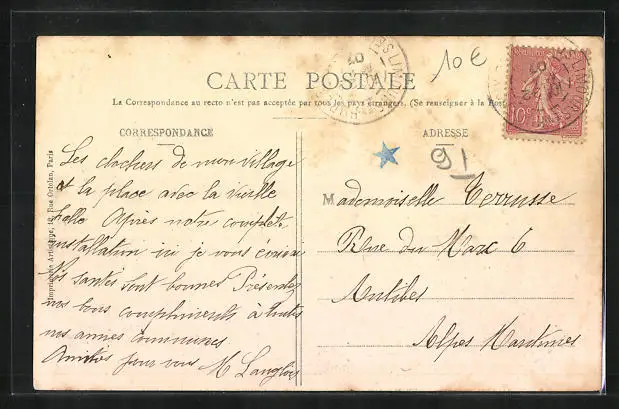 10 €
CARTE POSTALE
La Correspondance au recto n'est pas acceptée par tous les pays étrangers. (Se renseigner à la Poste
CORRESPONDANCE
ADRESSE
91
Les clochers de mon village
et la place avec la vieille
halle Après notre complète
installation ici je vous écrirai
Nos santés sont bonnes Présentez
nos bons compliments à toutes
nos amies communes
Amitiés pour vous M Langlois
Mademoiselle Terrusse
Rue du Marc 6
Antibes
Alpes Maritimes
Imprimerie Artistique, 18, Rue Ortolan, Paris
10c